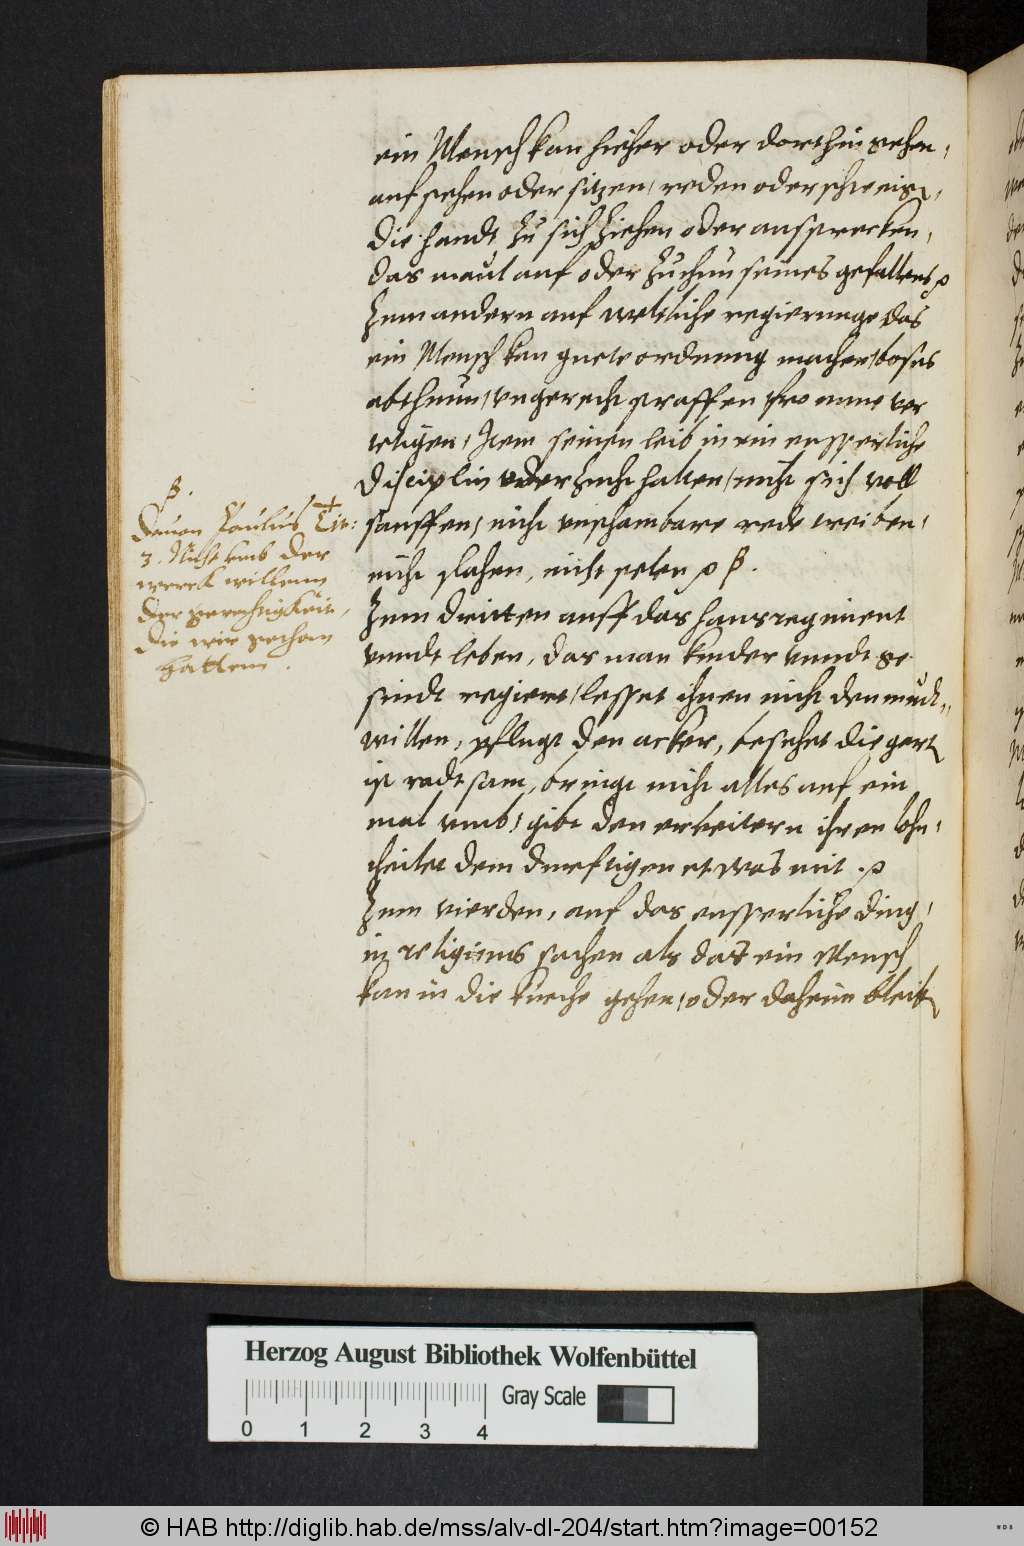 ein Mensch kan hieher oder dorthin gehen,
auf stehen oder sitzen, reden oder schweig\[en\],
die handt zu sich ziehen oder ausstrecken,
das maul auf oder zuthun seines gefallens
Zum andern auf weltliche regierunge das
ein Mensch kan guete ordnung machen, boses
abthuun, ungerecht straffen fromme ver
teligen, Item seinen leib in ein eusserliche
Disciplin oder zucht halten, nicht sich voll
sauffen, nicht unschambare rede treiben,
nicht slahen, nicht stelen β.
β.
dauon Paulus Tit:
3. Nicht umb der
werck willenn
der gerechtigkeit,
die wir gethan
hattenn.
Zum dritten auff das hausregiment
unndt leben, das man kinder unndt ge
sindt regiert, lesset ihnen nicht den mudt,,
willen, pflugt den acker, besehet die gert
ist radtsam, bringt nicht alles auf ein
mal umb, gibt den erbeitern ihren lohn,
theilet dem durftigen etwas mit.
Zum vierden, auf das eusserliche ding,
in religions sachen als das ein Mensch
kan in die kirche gehen, oder daheim bleib
Herzog August Bibliothek Wolfenbüttel
Gray Scale
0 1 2 3 4
© HAB http://diglib.hab.de/mss/alv-dl-204/start.htm?image=00152